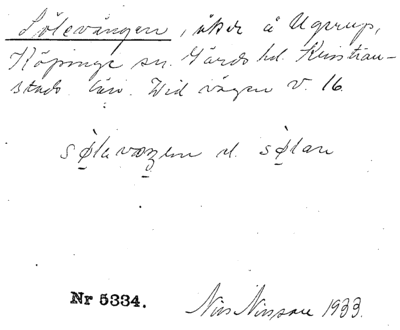 Sölevången, åker å Ugerup,
Köpinge sn. Gärds hd. Kristian-
stads län. Vid vägen V. 16.
sølavaŋen el. sølan
Nr 5334.
Nils Nilsson 1933.